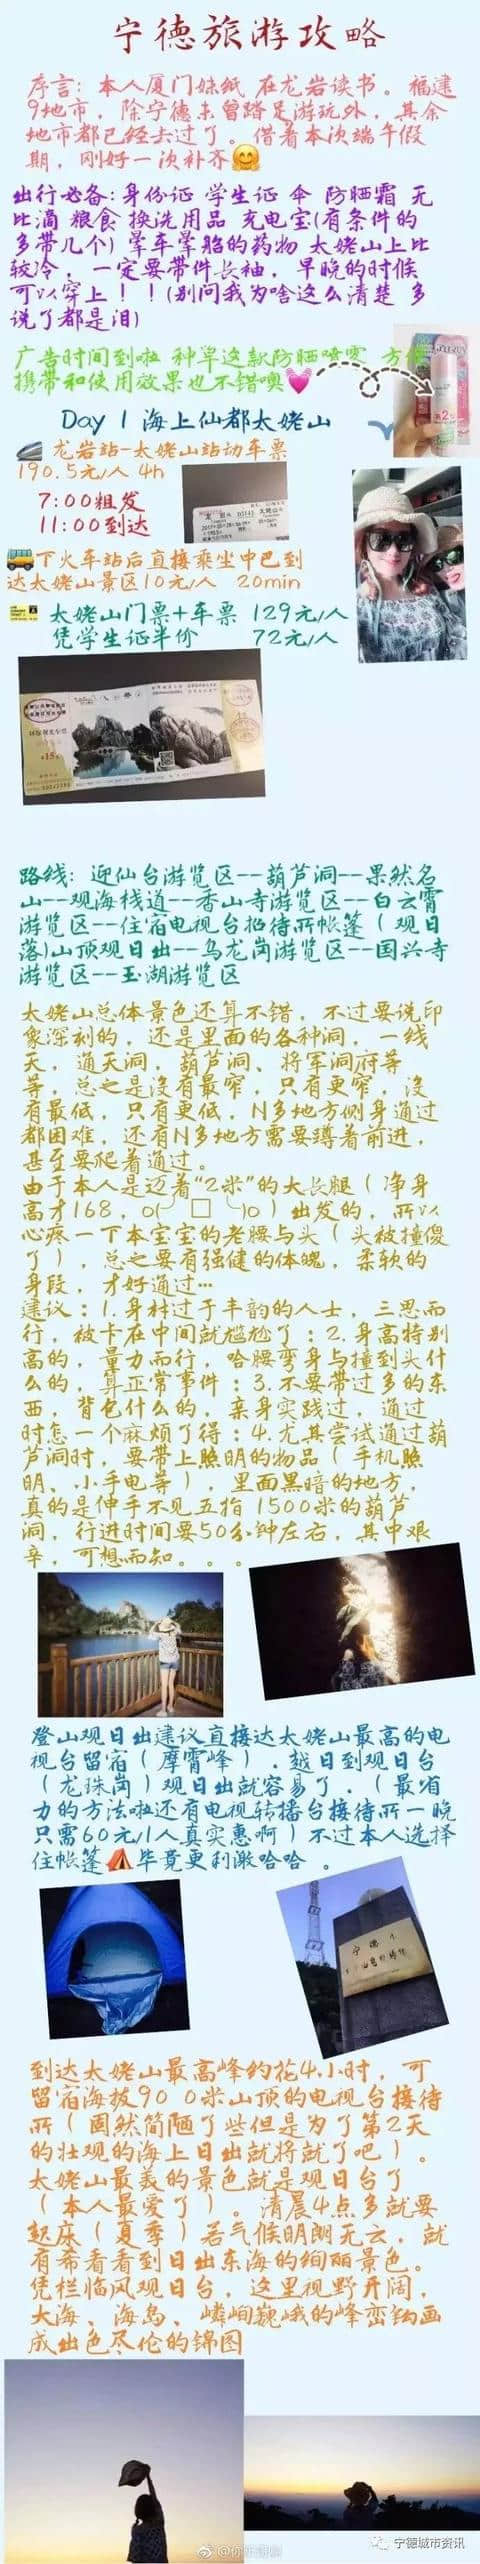 宁德旅游攻略
序言：本人厦门妹纸 在龙岩读书。福建
9地市，除宁德未曾踏足游玩外，其余
地市都已经去过了。借着本次端午假
期，刚好一次补齐🤗
出行必备：身份证 学生证 伞 防晒霜 无
比滴 粮食 换洗用品 充电宝(有条件的
多带几个) 晕车晕船的药物 太姥山上比
较冷，一定要带件长袖，早晚的时候
可以穿上！！(别问我为啥这么清楚 多
说了都是泪)
广告时间到啦 种草这款防晒喷雾 方便
携带和使用效果也不错噢💓
Day 1 海上仙都太姥山
🚄龙岩站-太姥山站动车票
190.5元/人 4h
7:00粗发
11:00到达
🚌下火车站后直接乘坐中巴到
达太姥山景区10元/人 20min
太姥山门票+车票 129元/人
凭学生证半价 72元/人
路线：迎仙台游览区--葫芦洞--果然名
山--观海栈道--香山寺游览区--白云霄
游览区--住宿电视台招待所帐篷（观日
落)山顶观日出--乌龙岗游览区--国兴寺
游览区--玉湖游览区
太姥山总体景色还算不错，不过要说印
象深刻的，还是里面的各种洞，一线
天，通天洞，葫芦洞、将军洞府等
等，总之是没有最窄，只有更窄，没
有最低，只有更低，N多地方侧身通过
都困难，还有N多地方需要蹲着前进，
甚至要爬着通过。
由于本人是迈着“2米”的大长腿（净身
高才168，o(╯□╰)o）出发的，所以
心疼一下本宝宝的老腰与头（头被撞傻
了），总之要有强健的体魄，柔软的
身段，才好通过…
建议：1.身材过于丰韵的人士，三思而
行，被卡在中间就尴尬了；2.身高特别
高的，量力而行，哈腰弯身与撞到头什
么的，算正常事件；3.不要带过多的东
西，背包什么的，亲身实践过，通过
时怎一个麻烦了得；4.尤其尝试通过葫
芦洞时，要带上照明的物品（手机照
明、小手电等），里面黑暗的地方，
真的是伸手不见五指 1500米的葫芦
洞，行进时间要50分钟左右，其中艰
辛，可想而知。。。
登山观日出建议直接达太姥山最高的电
视台留宿（摩霄峰）.越日到观日台
（龙珠岗）观日出就容易了.（最省
力的方法啦还有电视转播台接待所一晚
只需60元/1人真实惠啊）不过本人选择
住帐篷⛺毕竟更刺激哈哈 。
到达太姥山最高峰约花4小时，可
留宿海拔90 0米山顶的电视台接待
所（固然简陋了些但是为了第2天
的壮观的海上日出就将就了吧）。
太姥山最美的景色就是观日台了
（本人最爱了）。清晨4点多就要
起床（夏季）若气候明朗无云，就
有希看看到日出东海的绚丽景色。
凭栏临风观日台，这里视野开阔，
大海、海岛、嶙峋巍峨的峰峦钩画
成出色尽伦的锦图
宁德城市资讯